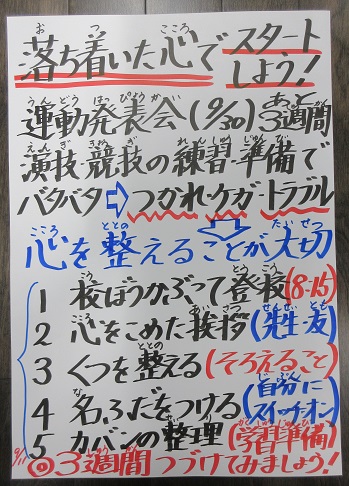 落ち着いた心でスタート
しよう!
運動発表会(9/30)あと3週間
演技・競技の練習・準備で
バタバタ⇨つかれ・ケガ・トラブル
心を整えることが大切
1 校ぼうかぶって登校(8:15)
2 心をこめた挨拶(先生・友)
3 くつを整える(そろえること)
4 名ふだをつける(自分にスイッチ・オン)
5 カバンの整理(学習準備)
9/11 ◎3週間つづけてみましょう!